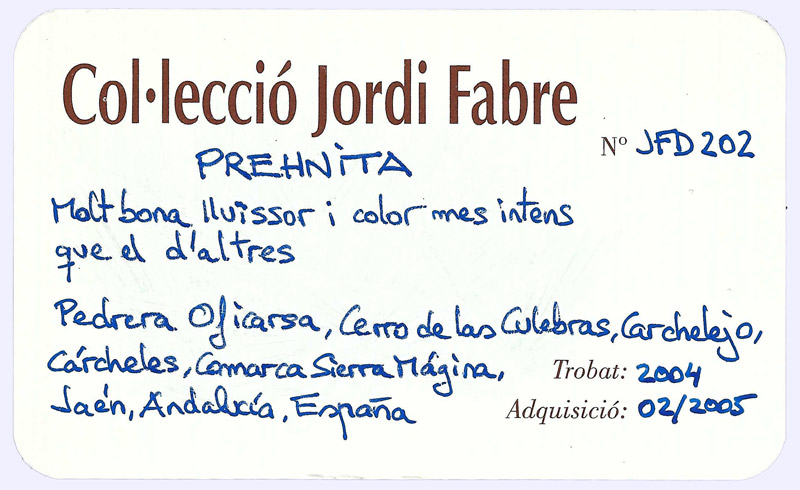 Col·lecció Jordi Fabre
Nº JFD202
PREHNITA
Molt bona lluïssor i color mes intens
que el d'altres
Pedrera Oficarsa, Cerro de las Culebras, Carchelejo,
Cárcheles, Comarca Sierra Mágina,
Jaén, Andalucía, España
Trobat: 2004
Adquisició: 02/2005